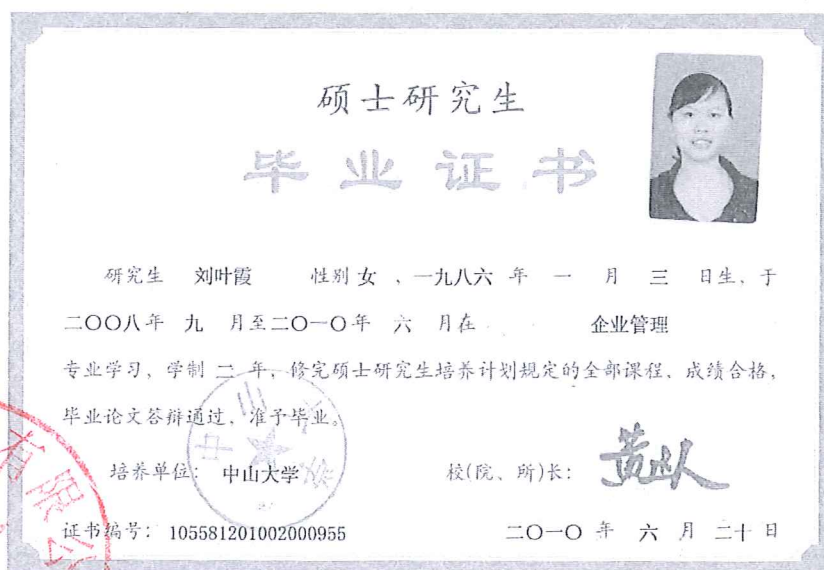 硕士研究生
毕业证书
研究生 刘叶霞 性别 女 ，一九八六 年 一 月 三 日生，于
二〇〇八年 九 月至二〇一〇年 六 月在 企业管理
专业学习，学制 二 年，修完硕士研究生培养计划规定的全部课程，成绩合格，
毕业论文答辩通过，准予毕业。
培养单位： 中山大学 校(院、所)长：
证书编号： 105581201002000955 二〇一〇 年 六 月 二十 日
中山大学
有限公